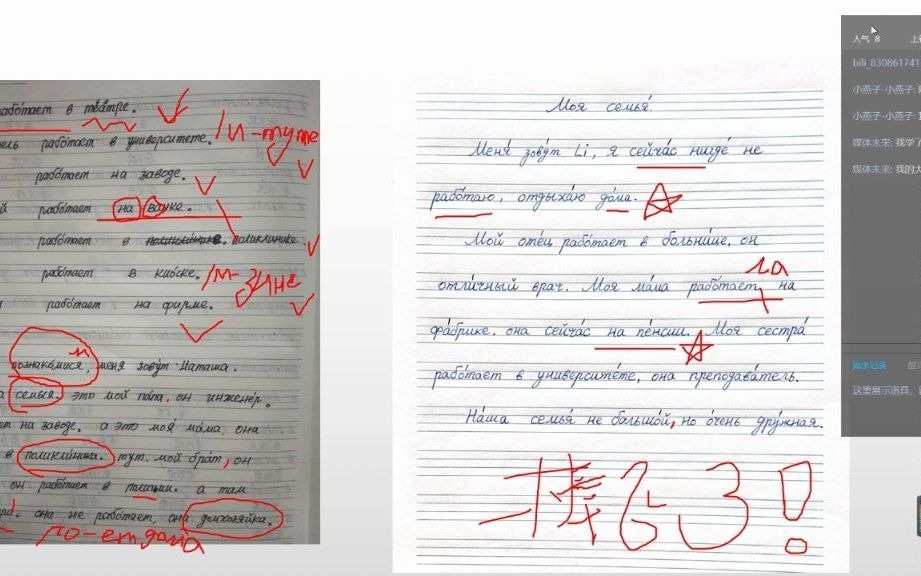 работает в театре.
работает в университете.
работает на заводе.
работает на
работает в поликлинике.
работает в киоске.
работает на фирме.
познакомися, меня зовут Наташа.
семья. это мой папа. он инженер.
на заводе. а это моя мама. она
в поликлиника. тут. мой брат, он
он работает в полиции. а там
она не работает, она домохозяйка.
Моя семья
Меня зовут Li, я сейчас нигде не
работаю, отдыхаю дома.
Мой отец работает в больнице, он
отличный врач. Моя мама работает на
ла
фабрике. она сейчас на пенсии. Моя сестра
работает в университете, она преподаватель.
Наша семья не большой, но очень дружная.
人气 8
bili_830861741
小燕子-小燕子:
小燕子-小燕子:
媒体未来: 我学了
媒体未来: 我的大
流水记录
这里展示道具,